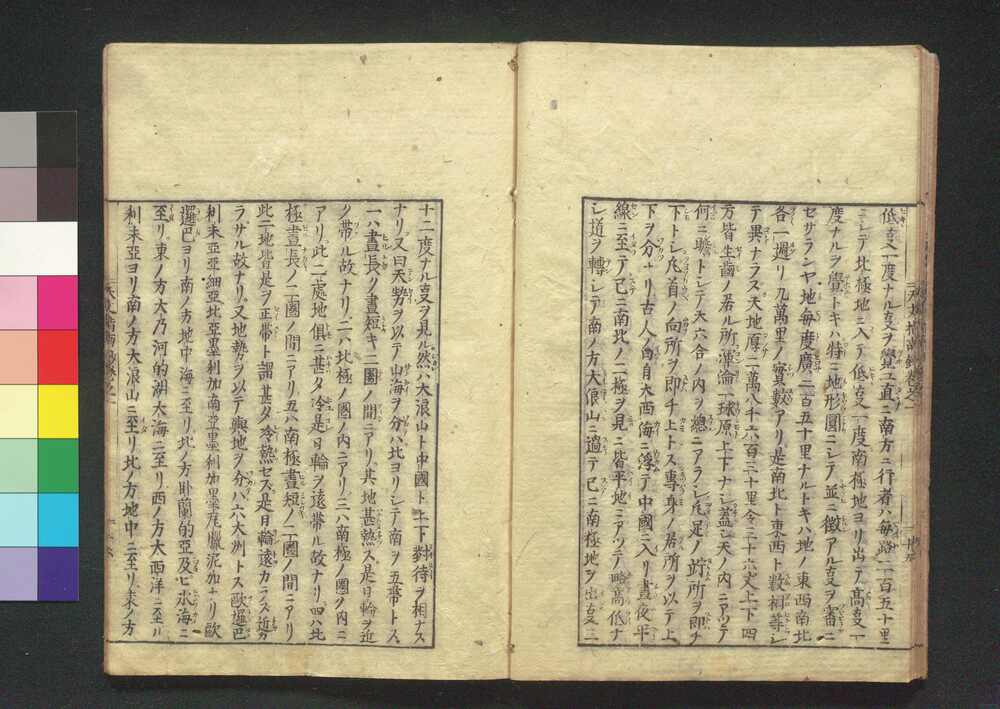 低キヿ一度ナルヿヲ覺ユ直ニ南方ニ行者ハ毎路二百五十里
ニシテ北極地ニ入テ低キヿ一度南極地ヨリ出テ高キヿ一
度ナルヲ覺トキハ特ニ地形圓ニシテ並ニ徴アルヿヲ審ニ
セサランヤ地毎度廣二百五十里ナルトキハ地ノ東西南北
各一週リ九萬里ノ實數アリ是南北ト東西ト數相等シ
テ異ナラス夫地厚二萬八千六百三十里令三十六丈上下四
方皆生齒ノ居ル所渾淪一球原上下ナシ蓋シ天ノ内ニアッテ
何ニ瞻トシテ天六合ノ内ヲ總ニアラン凡足ノ竚所ヲ即チ
下トシ凡首ノ向所ヲ即チ上トス專身ノ居所ヲ以テ上
下ヲ分ナリ古人ノ曰自大西海ニ浮テ中國ニ入リ晝夜平
線ニ至テ已ニ南北ノ二極ヲ見ニ皆平地ニアッテ略高低ナ
シ道ヲ轉シテ南ノ方大浪山ニ過テ已ニ南極地ヲ出ヿ三
十二度ナルヿヲ見ル然ハ大浪山ト中國ト上下對待ヲ相ナス
ナリ又曰天勢ヲ以テ山海ヲ分ハ北ヨリシテ南ヲ五帶トス
一ハ晝長ク晝短キ二圏ノ間ニアリ其地甚熱ス是日輪ヲ近
ク帶ル故ナリ二ハ北極ノ圏ノ内ニアリ三ハ南極ノ圏ノ内ニ
アリ此二處地俱ニ甚タ冷是日輪ヲ遠帶ル故ナリ四ハ北
極晝長ノ二圏ノ間ニアリ五ハ南極晝短ノ二圏ノ間ニアリ
此二地皆是ヲ正帶ト謂甚タ冷熱セス是日輪遠カラス近カ
ラサル故ナリ又地勢ヲ以テ輿地ヲ分ハ六大洲トス歐邏巴
利未亞亞細亞北亞墨利加南亞墨利加墨瓦臘泥加ナリ歐
邏巴ヨリ南ノ方地中海ニ至リ北ノ方卧蘭的亞及ヒ氷海ニ
至リ東ノ方大乃河的湖大海ニ至リ西ノ方大西洋ニ至ル
利未亞ヨリ南ノ方大浪山ニ至リ北ノ方地中ニ至リ東ノ方